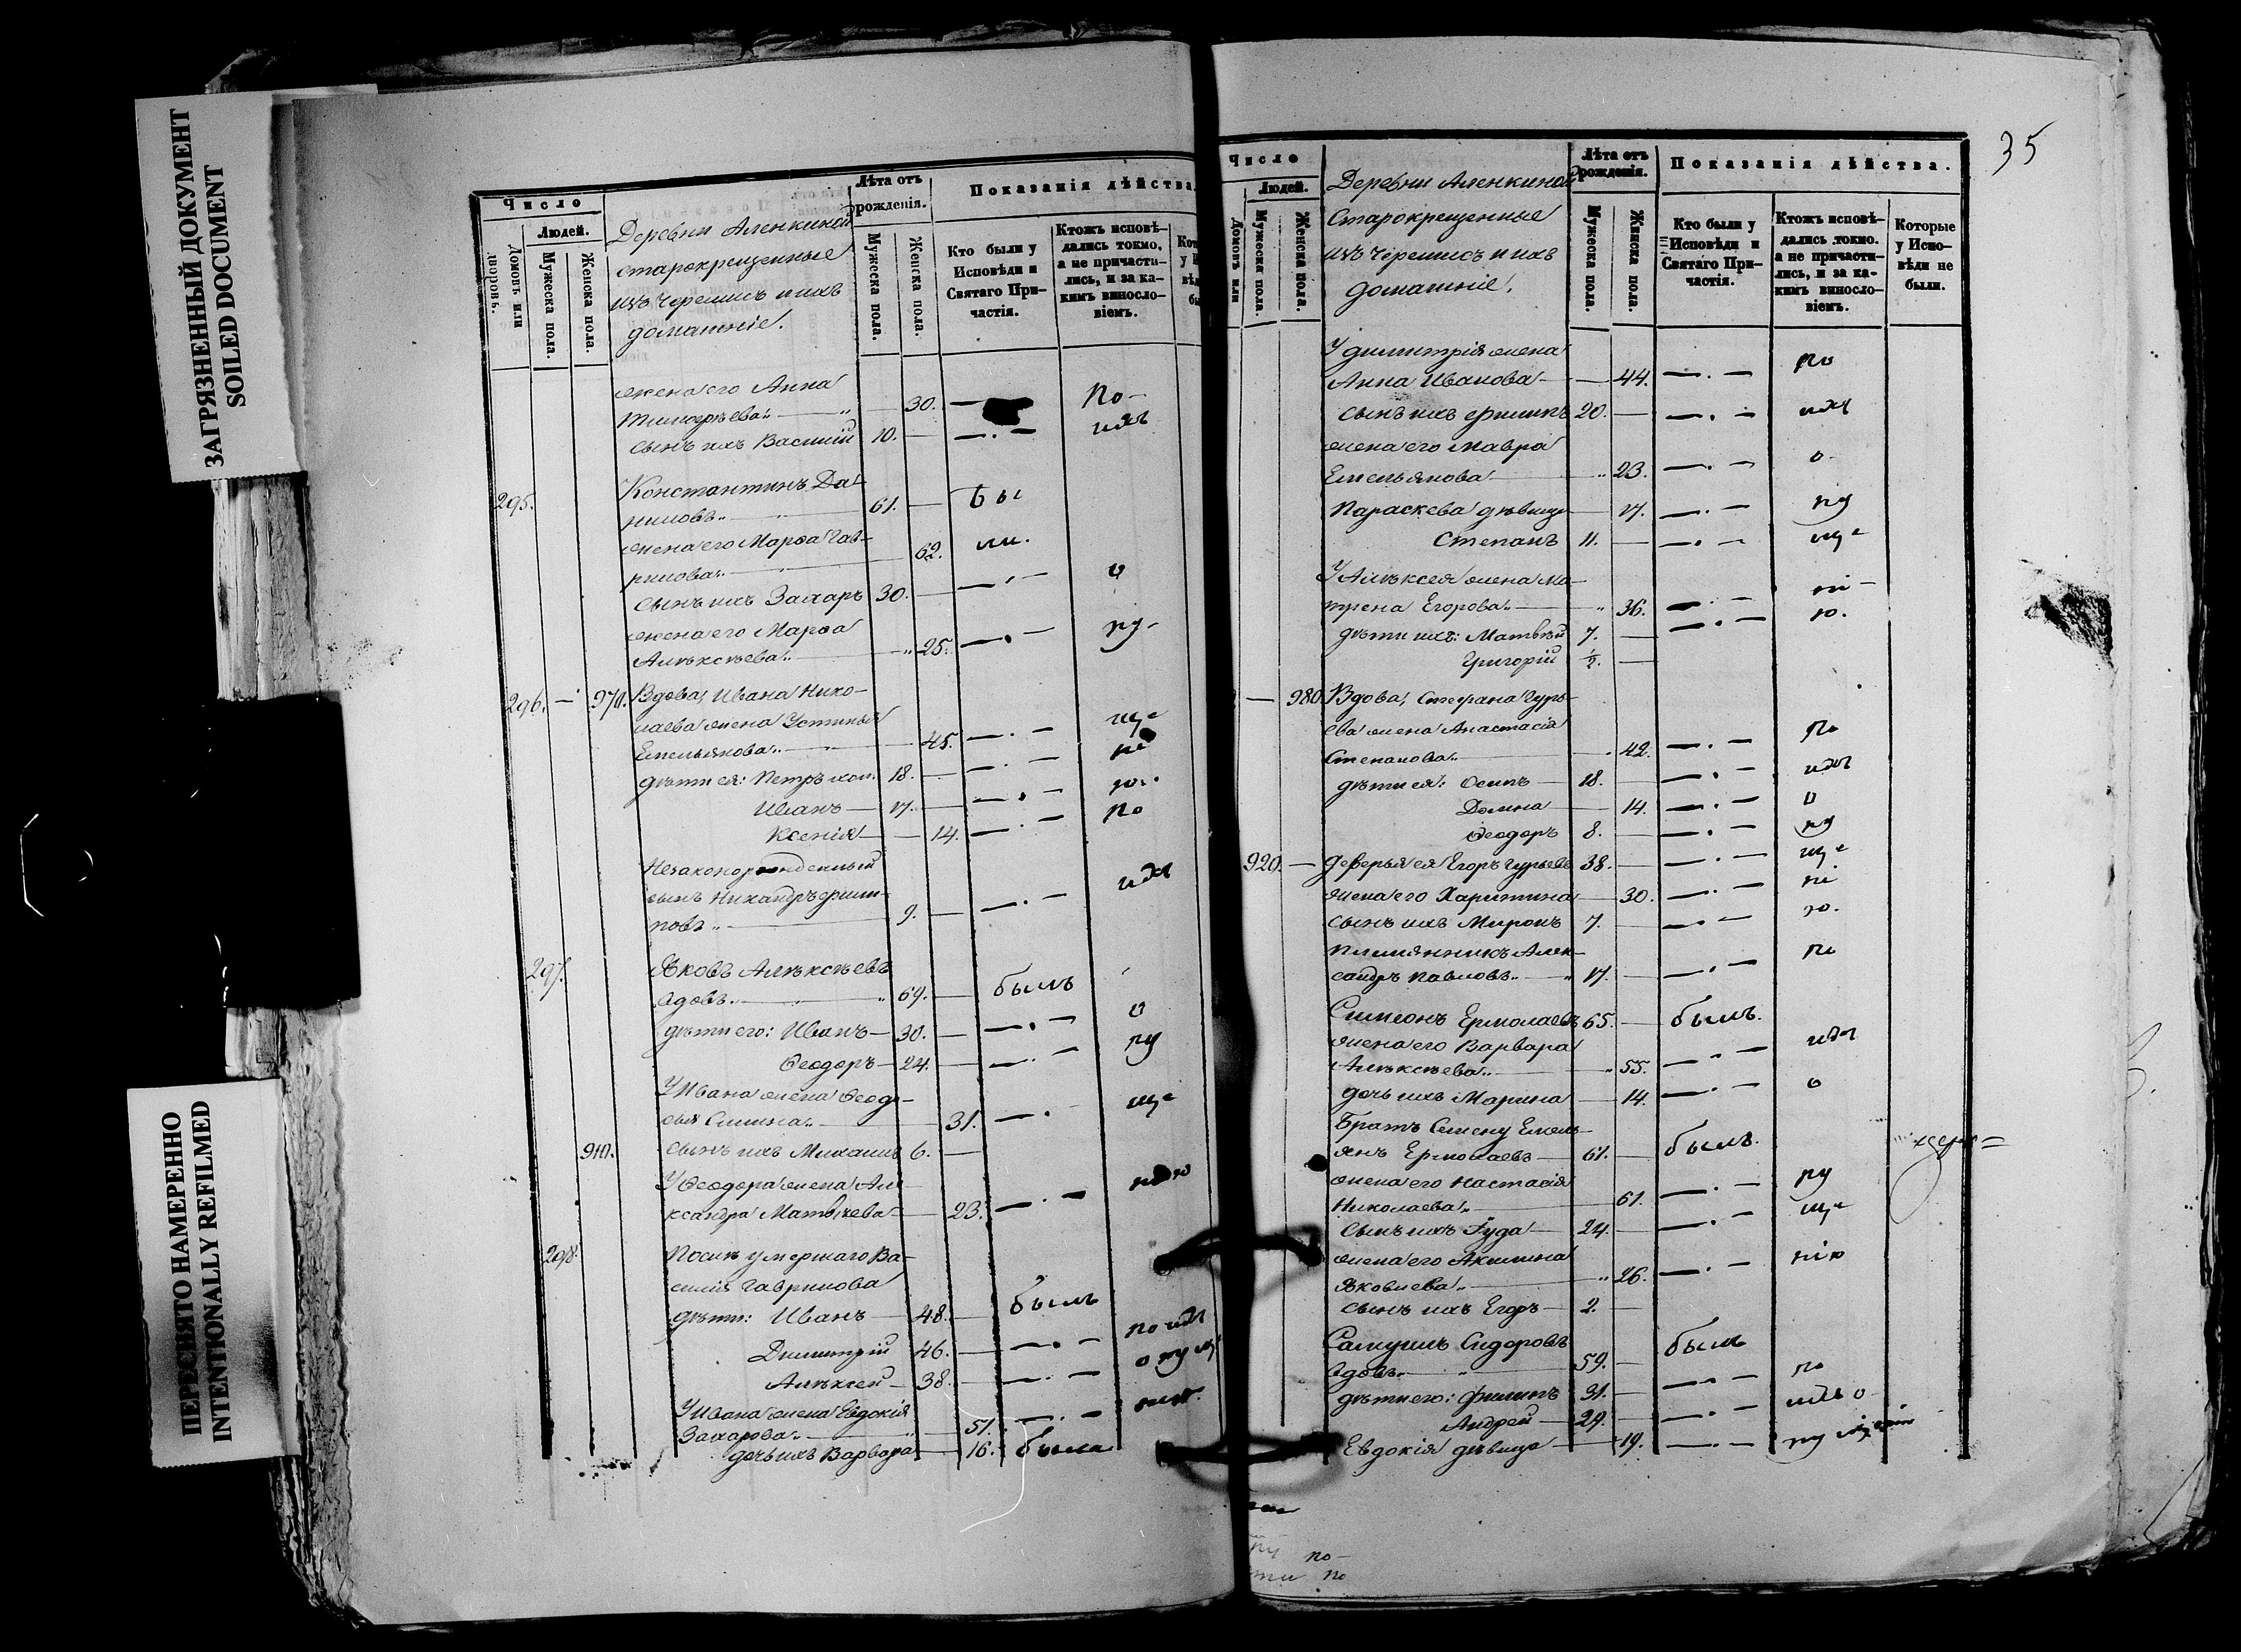 ЗАГРЯЗНЕННЫЙ ДОКУМЕНТ
SOILED DOCUMENT
ПЕРЕСНЯТО НАМЕРЕННО
INTENTIONALLY REFILMED
Число
Людей.
Домовъ или дворовъ.
Мужеска пола.
Женска пола.
Деревни Аленкиной
старокрещенные
изъ черемисъ и ихъ
домашніе.
Лѣта отъ рожденія.
Мужеска пола.
Женска пола.
Показанія дѣйства
Кто были у Исповѣди и Святаго Причастія.
Ктожъ исповѣдались токмо, а не причастились, и за какимъ винословіемъ.
жена его Анна
30. по-
сынъ ихъ Василій 10. идл
295. Константинъ Да-
ниловъ 61. бы
жена его Марѳа Гав-
рилова 62. ли.
сынъ ихъ Захаръ 30. о
жена его Марѳа
Алексѣева 25. пу-
296. 970. Вдова, Ивана Нико-
лаева жена Устинья
Емельянова 45. ще
дѣти ея: Петръ хол. 18. ні
Иванъ 17. ю.
Ксенія 14. по
Незаконорожденный
сынъ Никандръ Филип-
повъ 9. идл
297. Яковъ Алексѣевъ
вдовъ 69. былъ
дѣти его: Иванъ 30. о
Ѳеодоръ 24. пу
У Ивана жена Ѳеодо-
сья 31. ще
910. сынъ ихъ Михаилъ 6.
У Ѳеодора жена Але-
ксандра Матвѣева 23. нію
298. Послѣ умершаго Ва-
силія Гаврилова
дѣти: Иванъ 48. былъ
Димитрій 46. по идл
Алексей 38. о пу щ
У Ивана жена Евдокія
Захарова 51. нію.
дочь ихъ Варвара 16. была
35
Число
Людей.
Домовъ или
Мужеска пола.
Женска пола.
Деревни Аленкиной
старокрещенные
изъ черемисъ и ихъ
домашніе.
Лѣта отъ рожденія.
Мужеска пола.
Женска пола.
Показанія дѣйства.
Кто были у Исповѣди и Святаго Причастія.
Ктожъ исповѣдались токмо. а не причастились, и за какимъ винословіемъ.
Которые у Исповѣди не были.
У Димитрія жена
Анна Иванова 44. по
сынъ ихъ Филипъ 20. идл
жена его Мавра
Емельянова 23. о
Параскева дѣвица 17. пу
Степанъ 11. ще
У Алексея жена Ма-
трена Егорова 36. ні
дѣти ихъ: Матвѣй 7. ю.
Григорій ½.
980. Вдова, Стефана Гурь-
ева жена Анастасія
Степанова 42. по
дѣти ея: Осипъ 18. идл
Домна 14. о
Ѳеодоръ 8. пу
920. деверья ея Егоръ Гурьевъ 38. ще
жена его Харитина 30. ні
сынъ ихъ Миронъ 7. ю.
племянникъ Алек-
сандръ Павловъ 17. по
Симеонъ Ермолаевъ 65. былъ.
жена его Варвара
Алексѣева 55. идл
дочь ихъ Марина 14. о
Братъ Семену Емель-
янъ Ермолаевъ 61. былъ.
жена его Настасія
Николаева 61. пу
сынъ ихъ Іуда 24. ще
жена его Акилина
Яковлева 26. нію
сынъ ихъ Егоръ 2.
Самуилъ Сидоровъ
вдовъ 59. былъ
дѣти его: Филипъ 31. по
Андрей 29. идл о
Евдокія дѣвица 19. пу
по-
по